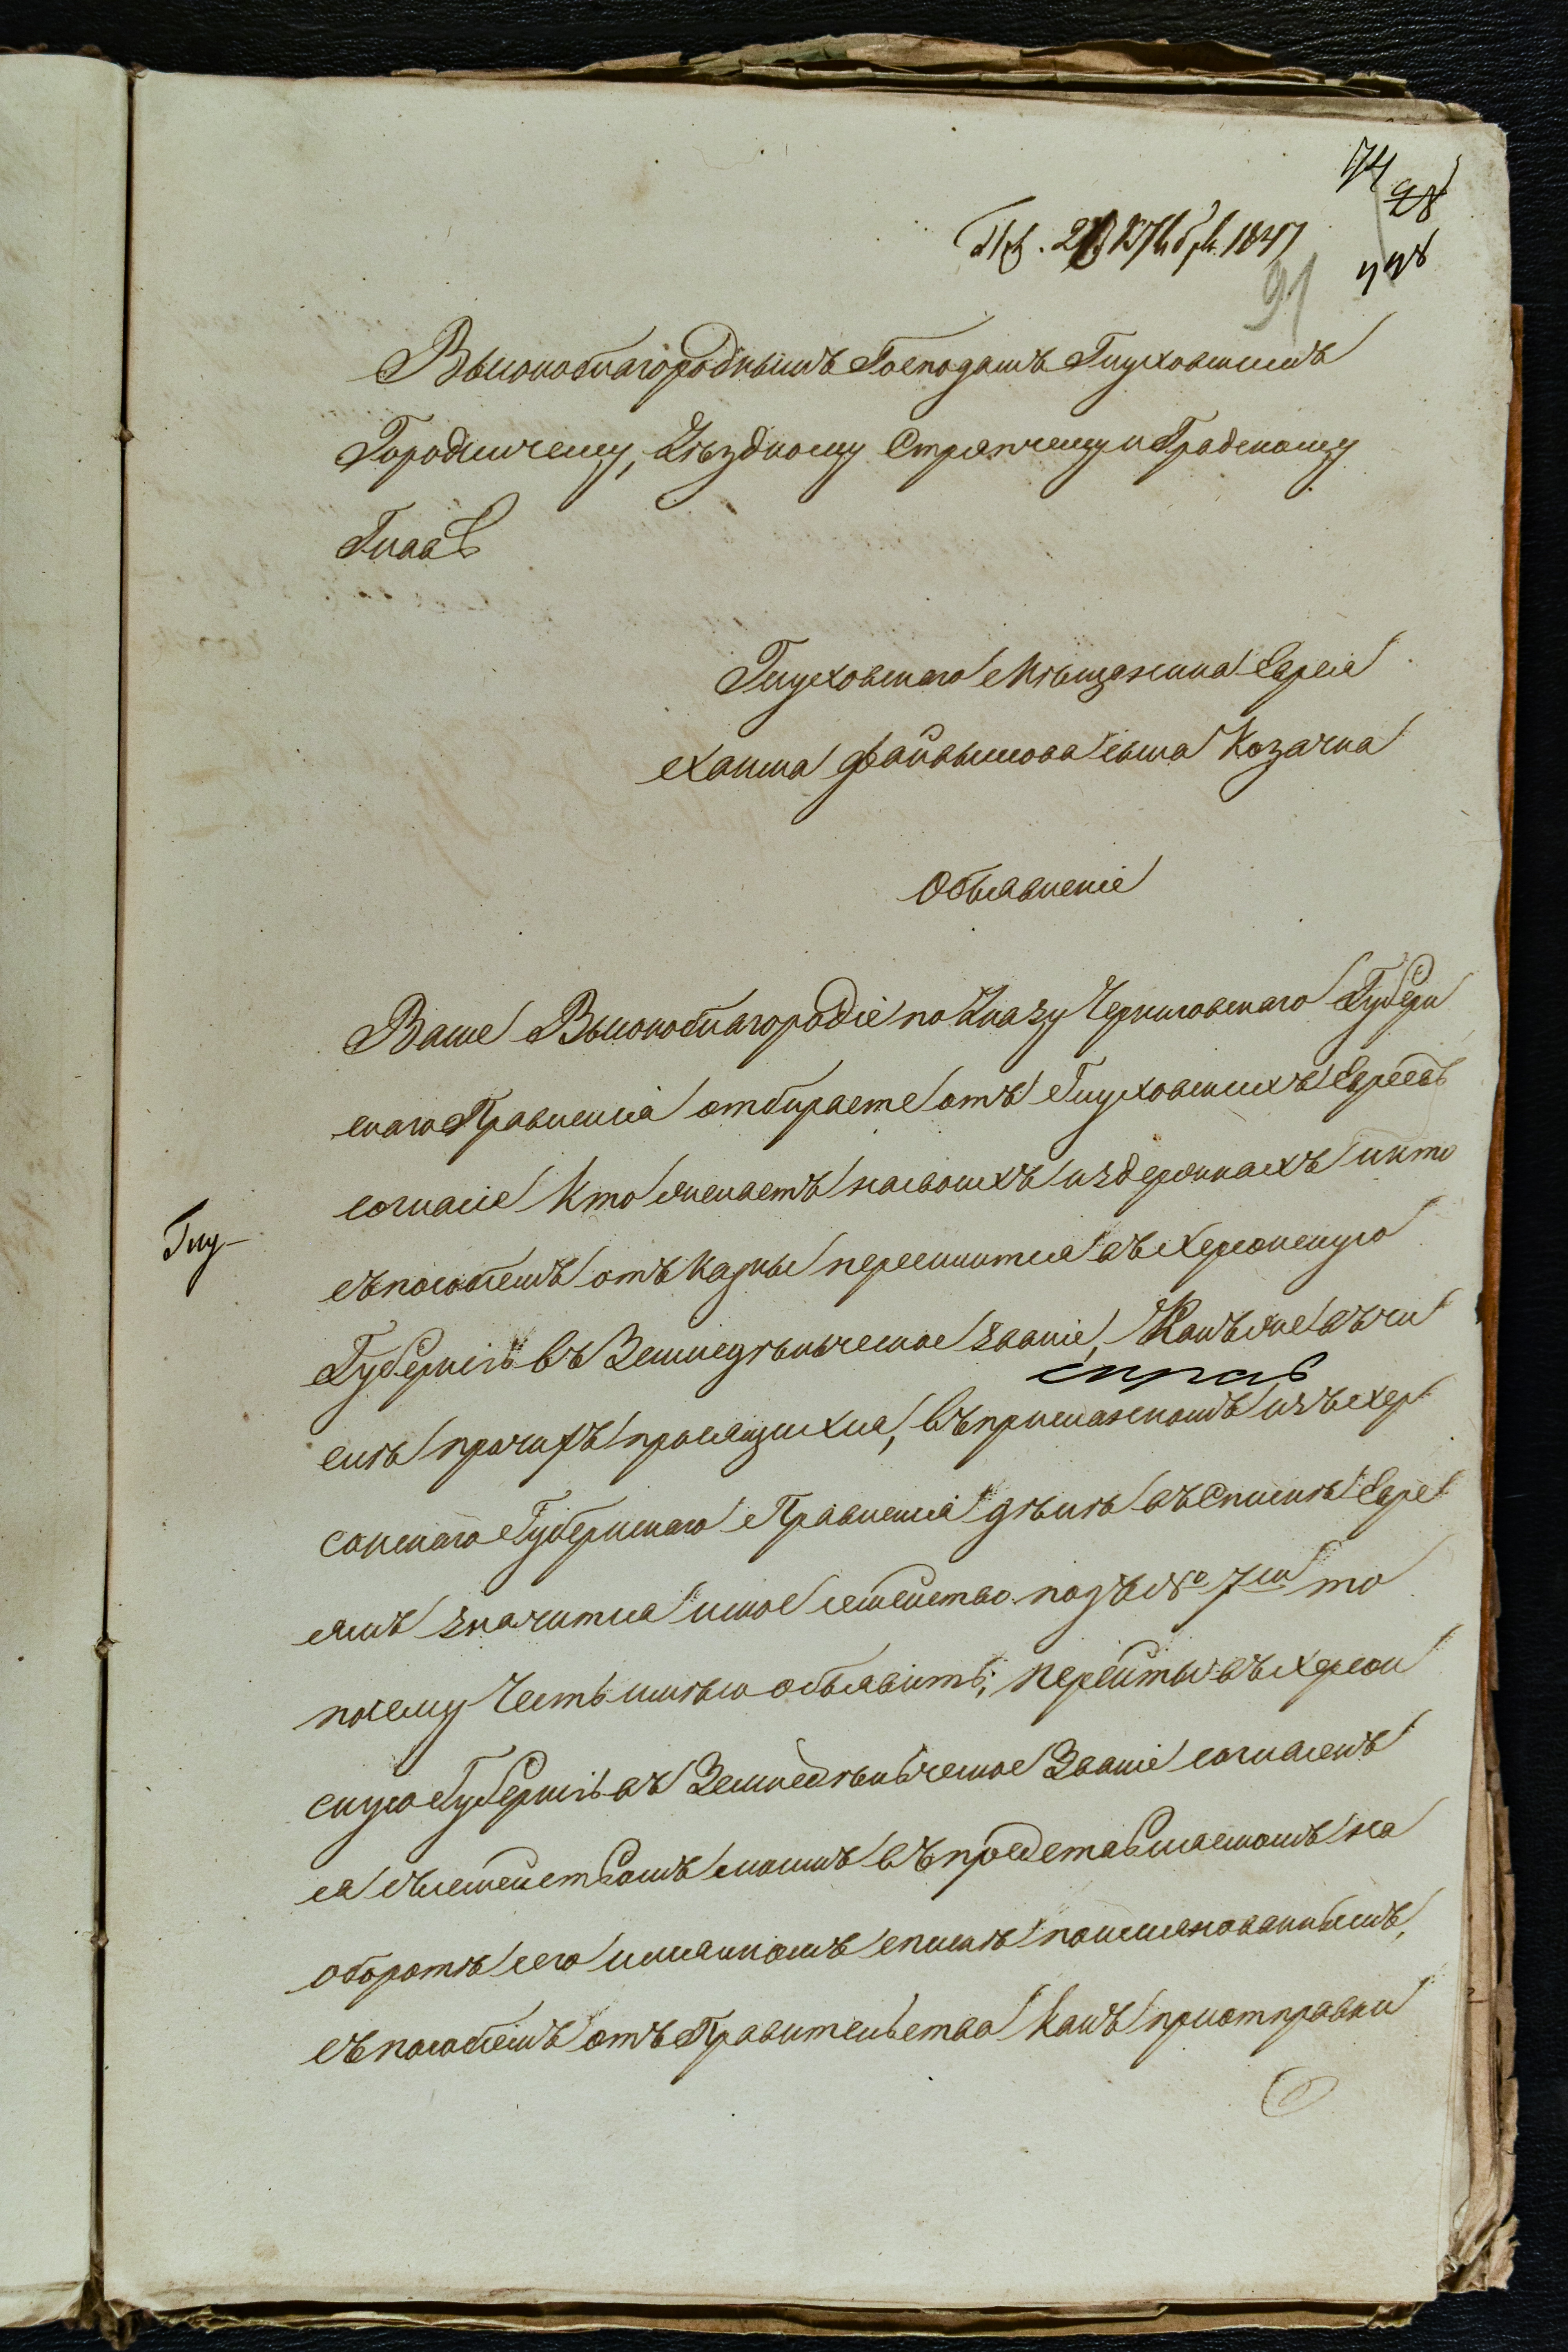 74
98
Пол. 28 8бря 1847
91
798
Высокоблагороднымъ Господамъ Глуховскимъ
Городничему, Уѣздному Стряпчему и Градскому
Главѣ
Глуховскаго Мѣщанина Еврея
Хаима Файвышова сына Козачка
Объявленіе
Ваше Высокоблагородіе по Указу Черниговскаго Губерн
скаго Правленія отбираете отъ Глуховскихъ Евреевъ
согласіе кто желаетъ на своихъ издержкахъ и кто
съ пособіемъ отъ казны переселится въ Херсонскую
Губернію въ Земледѣльческое званіе, Какъ же въ чи
Глу-
слѣ прочихъ просящихся, въ присланномъ изъ Хер
сонскаго Губернскаго Правленія дѣлѣ въ Спискѣ Евре
ямъ значится и мое семейство подъ № 7м то
посему Честь имѣю объявить; перейти въ Херсон
скую Губернію въ Земледѣльческое Званіе согласенъ
я съ семействомъ моимъ въ представляемомъ на
оборотѣ сего имянномъ спискѣ поименованнымъ,
съ пособіемъ отъ Правительства какъ при отправки